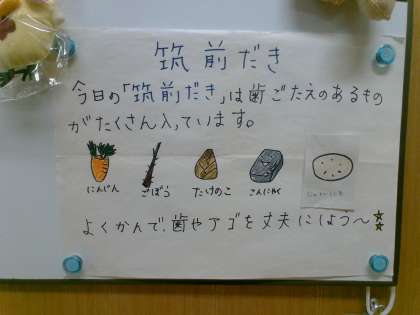 筑前だき
今日の「筑前だき」は歯ごたえのあるもの
がたくさん入っています。
にんじん ごぼう たけのこ こんにゃく
よくかんで、歯やアゴを丈夫にしよう〜